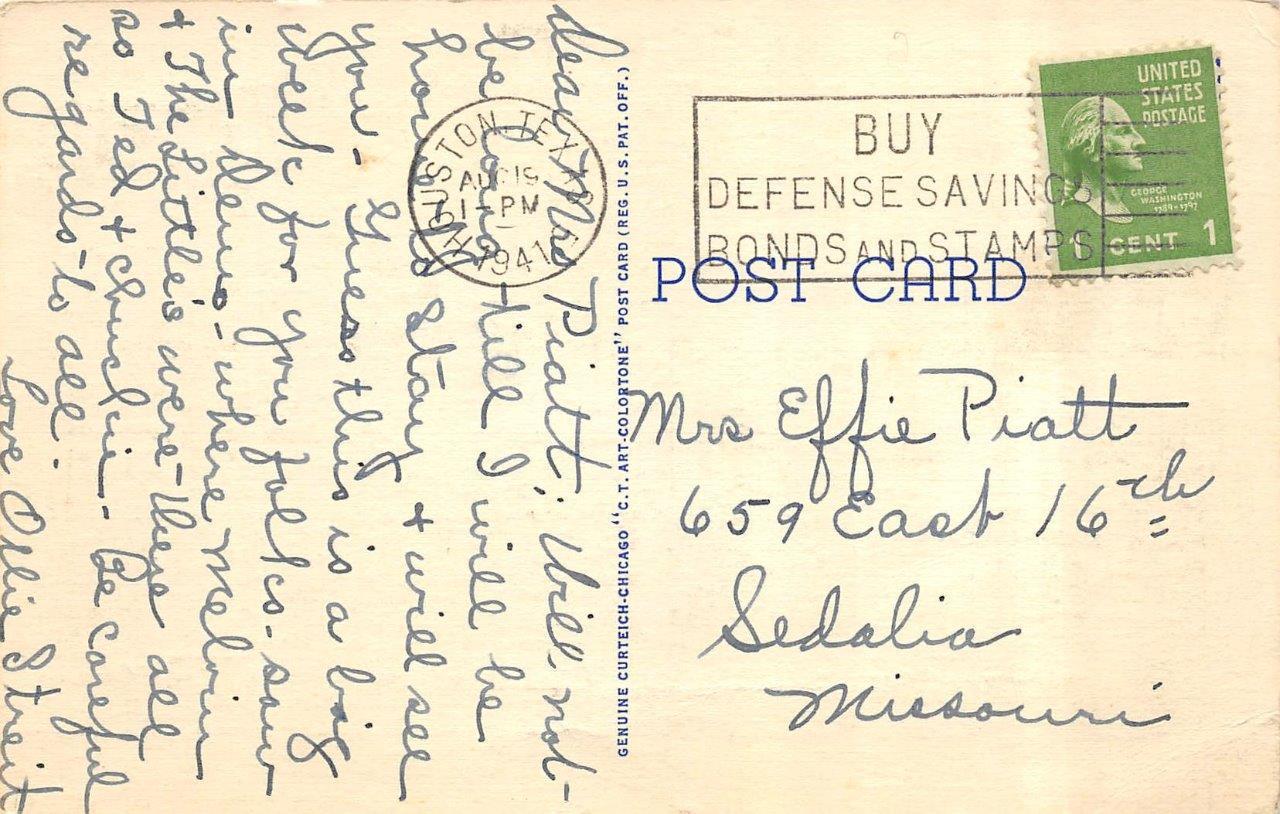 Dear Mrs Piatt: Will not
be long till I will be
home stay & will see
you - Guess this is a big
week for you folks - saw
in Demo - where Melvin
& The Little's were - there all
so Ted & Chuckie - Be careful
regards - to all.
Love Ollie Streit
HOUSTON, TEXAS
AUG 19
1 - PM
1941
BUY
DEFENSE SAVINGS
BONDS AND STAMPS
UNITED
STATES
POSTAGE
GEORGE
WASHINGTON
1789-1797
1 CENT 1
GENUINE CURTEICH-CHICAGO "C.T. ART-COLORTONE" POST CARD (REG. U.S. PAT. OFF.)
POST CARD
Mrs Effie Piatt
659 East 16th
Sedalia
Missouri